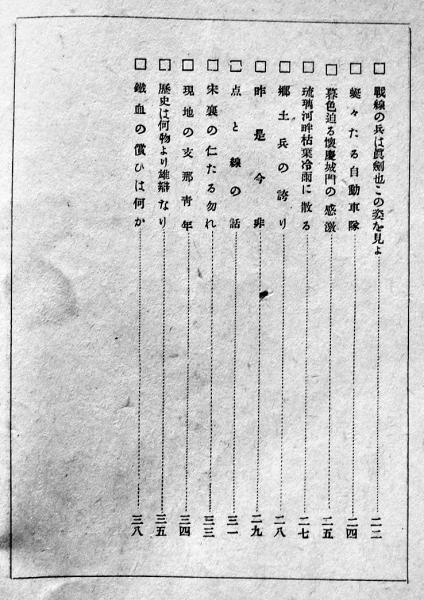 □ 戰線の兵は眞劍也この姿を見よ……二二
□ 蜒々たる自動車隊……二四
□ 暮色迫る懷慶城門の感激……二五
□ 琉璃河畔枯葉冷雨に散る……二七
□ 鄕土兵の誇り……二八
□ 昨是今非……二九
□ 点と線の話……三一
□ 宋襄の仁たる勿れ……三三
□ 現地の支那靑年……三四
□ 歷史は何物より雄辯なり……三五
□ 鐵血の償ひは何か……三八